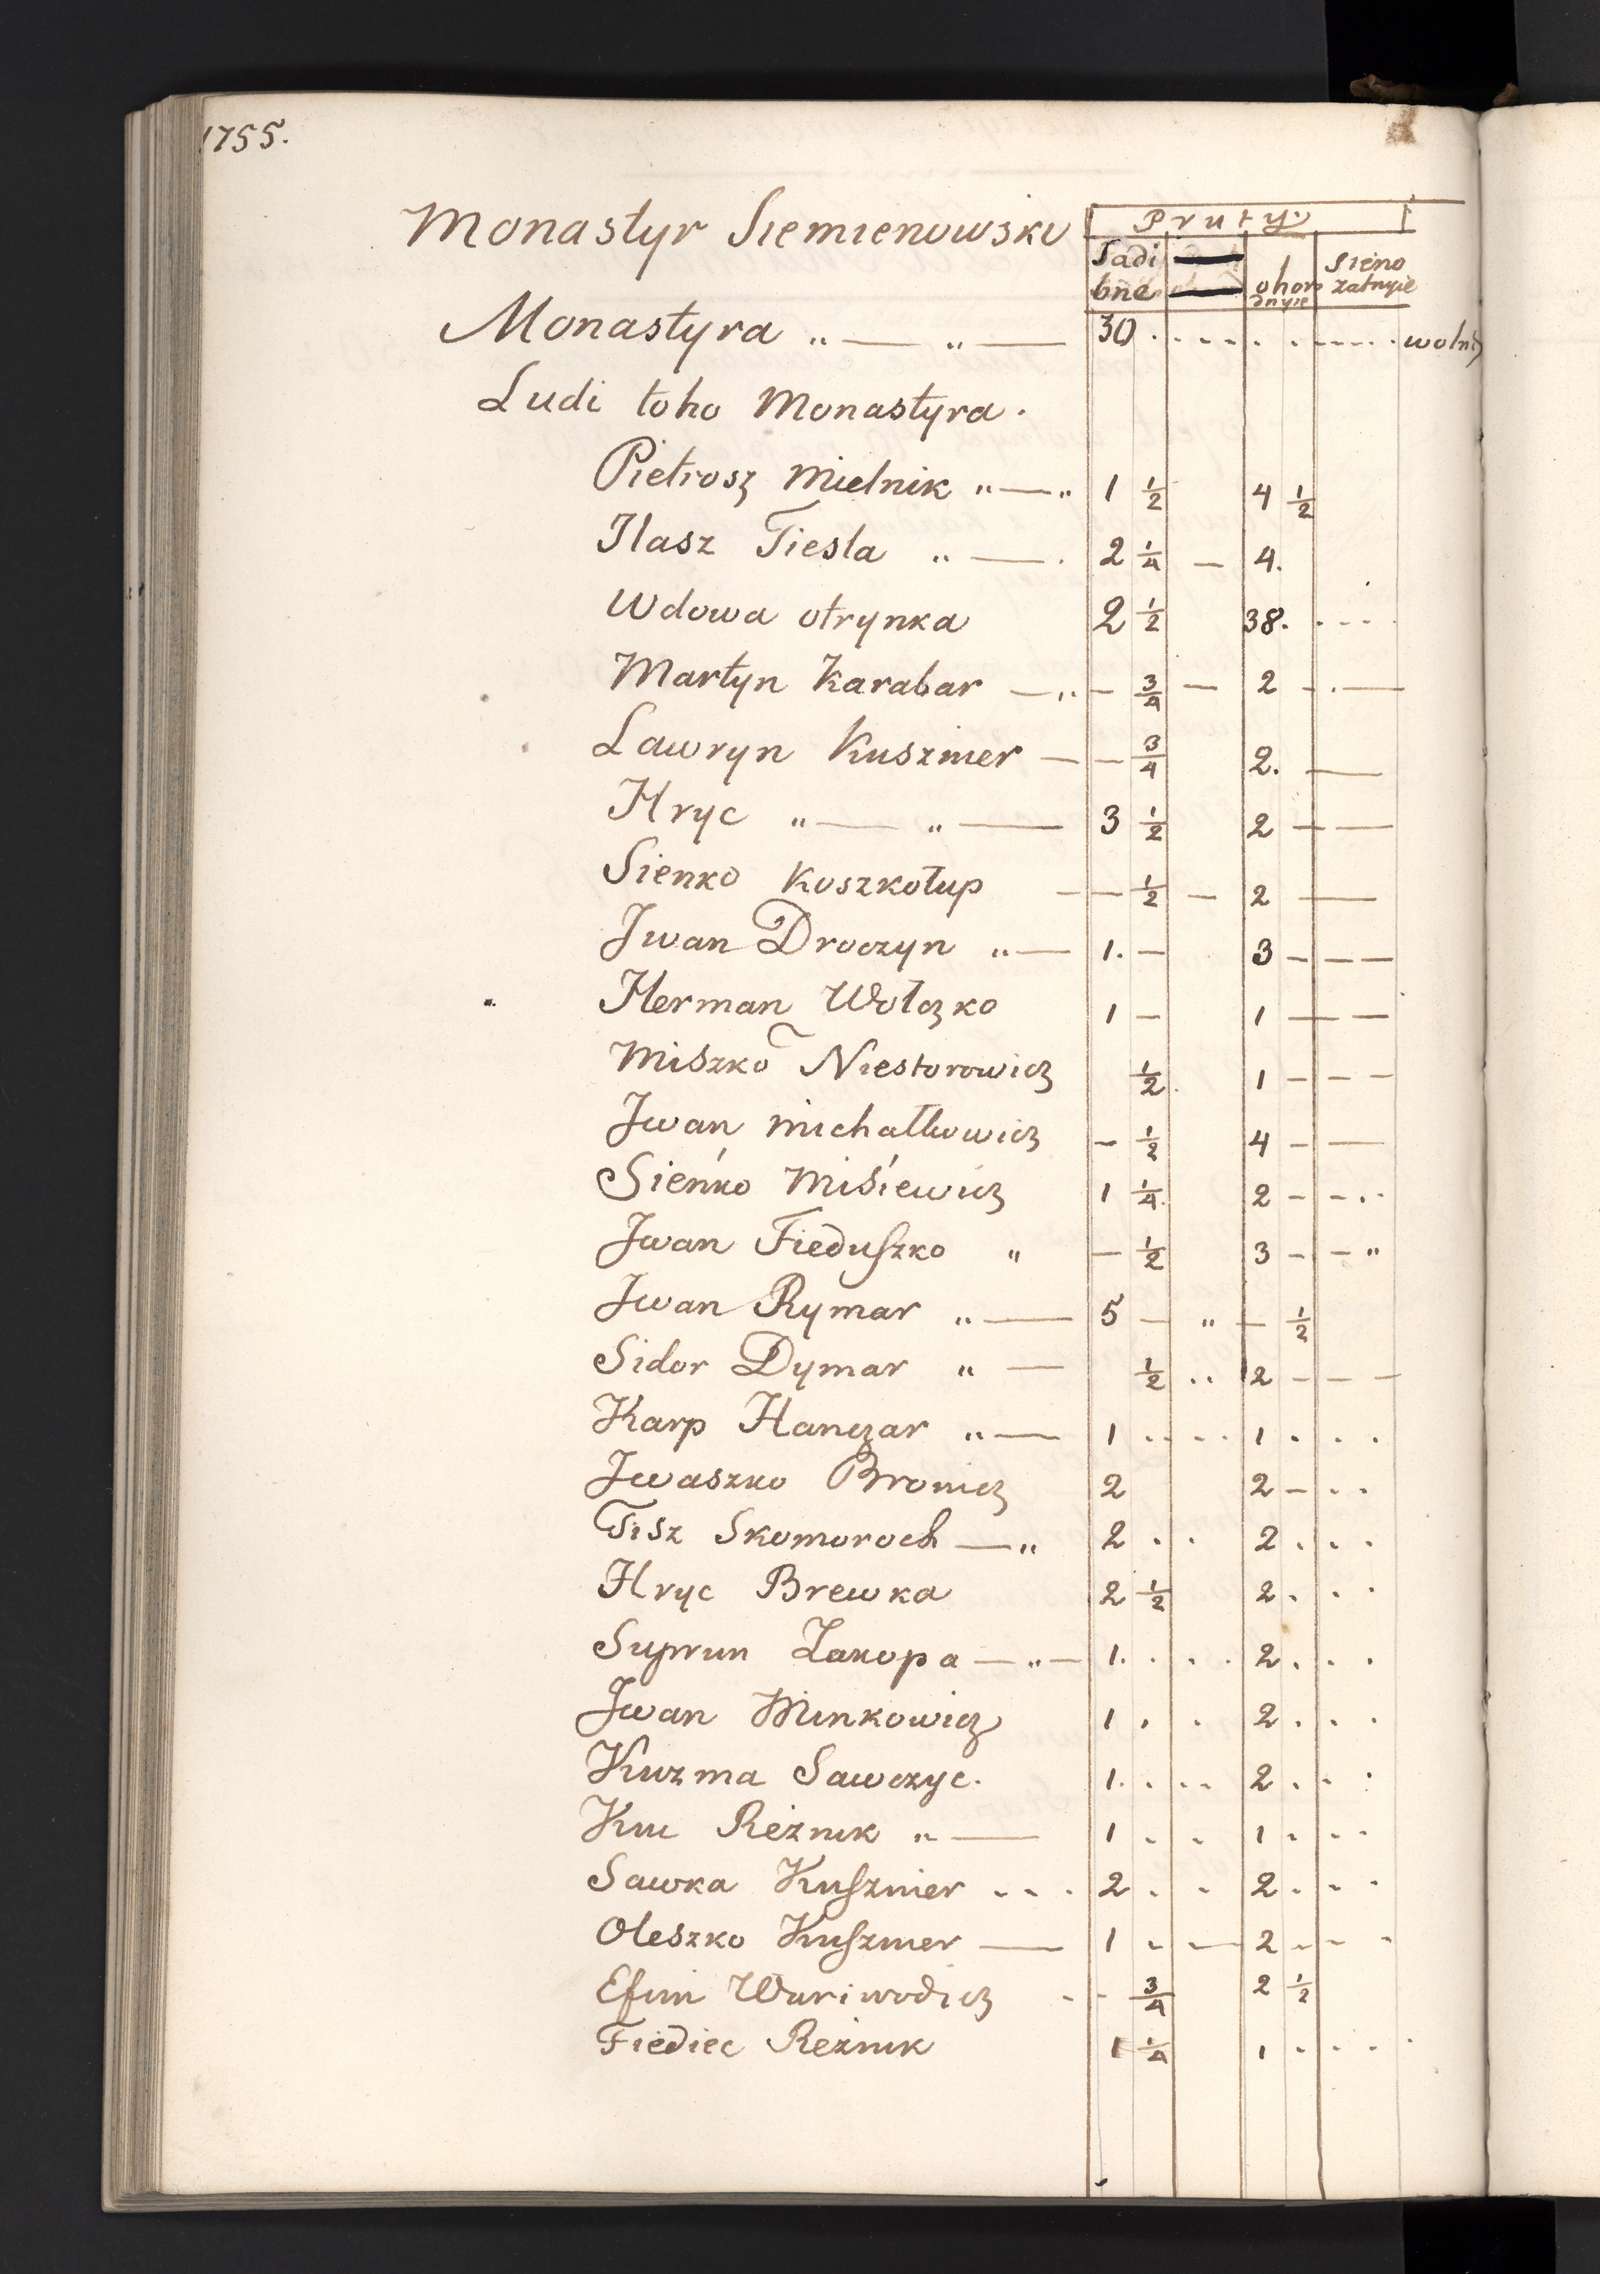 1755.
Monastyr Siemienowski
Pruty
Sadi bne ohoro dnyie Sieno zatnyie
Monastyra „ — „ — 30 . . . . . . . wolny
Ludi toho Monastyra.
Pietrosz Mielnik „ — „ 1 1/2 4 1/2
Ilasz Tiesla „ — . 2 1/4 — 4.
Wdowa otrynka 2 1/2 38. . . . .
Martyn Karabar — „ – 3/4 — 2 – . —
Lawryn Kuszmer — – 3/4 2. —
Hryc „ — „ — 3 1/2 2 — —
Sienko Koszkołup — – 1/2 — 2 —
Jwan Droczyn „ — 1. — 3 – – –
Herman Wołczko 1 – 1 — –
Miszko Niestorowicz 1/2 1 – – –
Jwan Michałkowicz – 1/2 4 – —
Sieńko Miśiewicz 1 1/4 2 – – . .
Jwan Fieduszko „ – 1/2 3 – – „
Jwan Rymar „ — 5 – „ – 1/2
Sidor Dymar „ — 1/2 . . 2 – – –
Karp Hanczar „ — 1 . . . . 1 . . .
Jwaszko Bronicz 2 2 – . .
Tisz Skomoroch — „ 2 . . 2 . . .
Hryc Brewka 2 1/2 2 . . .
Suprun Zakopa — „ — 1. . . . 2 . . .
Jwan Minkowicz 1 . . 2 . . .
Kuzma Sawczyc. 1. . . . 2 . . .
Reżnik „ — 1 . . 1 . . .
Sawka Kuszmer . . . 2 . . 2 . . .
Oleszko Kuszmer — 1 – — 2 – – –
Efim Wariwodicz - - 3/4 2 1/2
Fiediec Reżnik 1 1/4 1 . . .